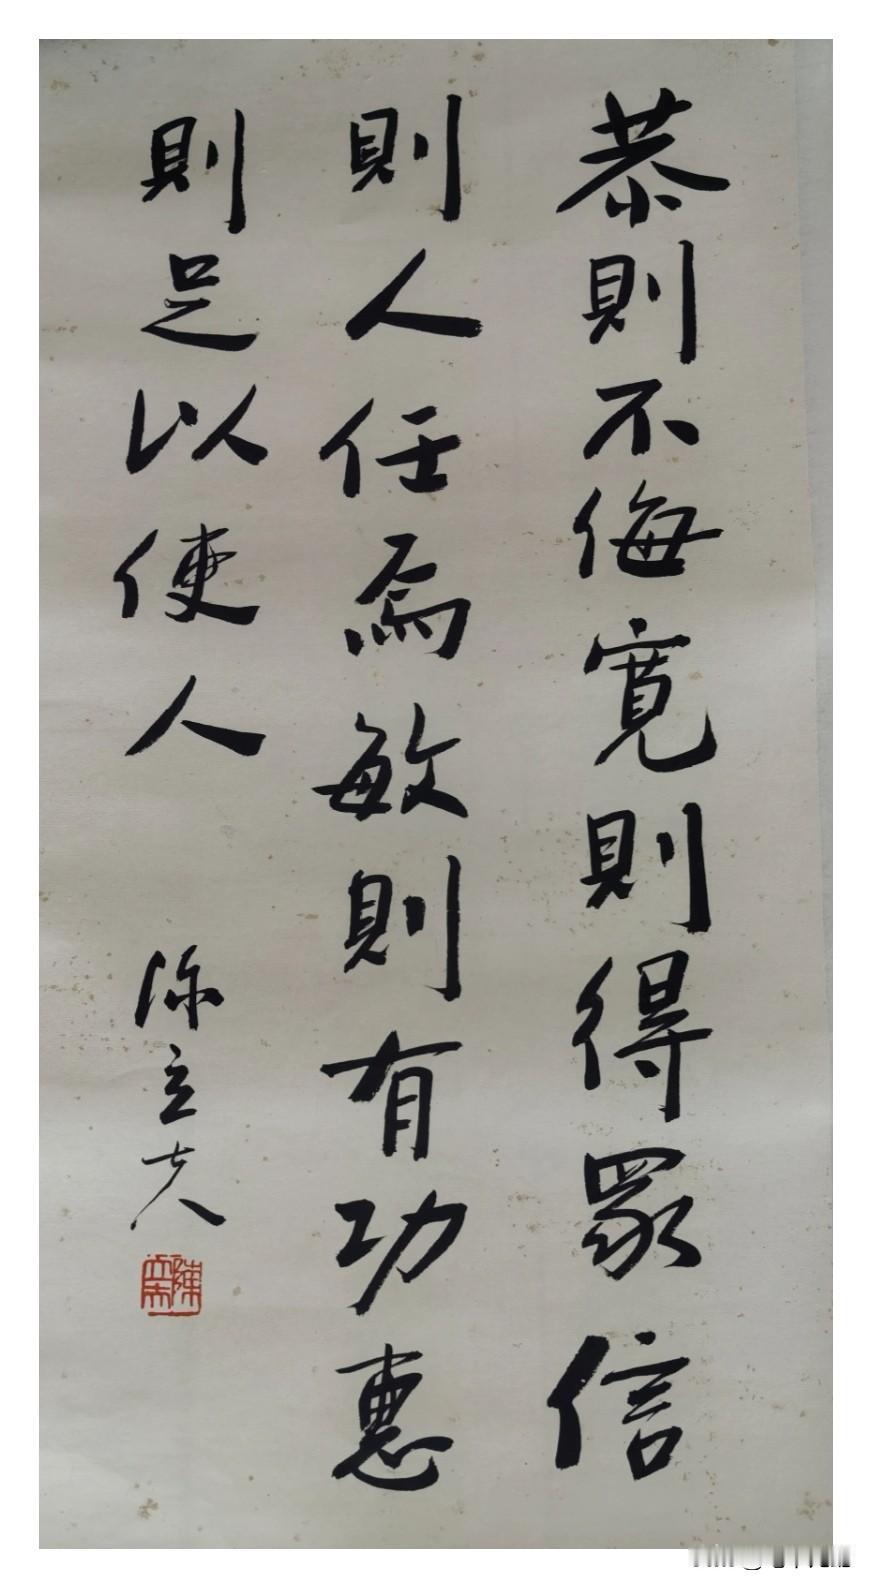 恭則不侮寬則得眾信
則人任焉敏則有功惠
則足以使人
陳立夫
陳立夫